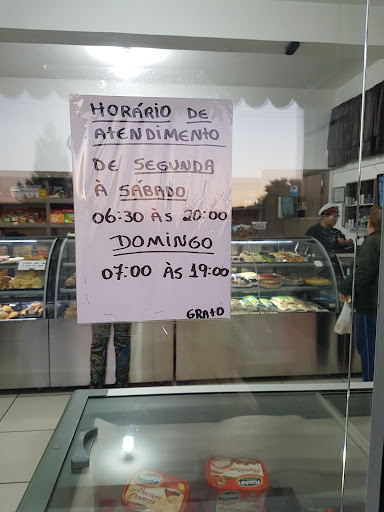 HORÁRIO DE
ATENDIMENTO
DE SEGUNDA
À SÁBADO
06:30 ÀS 20:00
DOMINGO
07:00 ÀS 19:00
GRATO